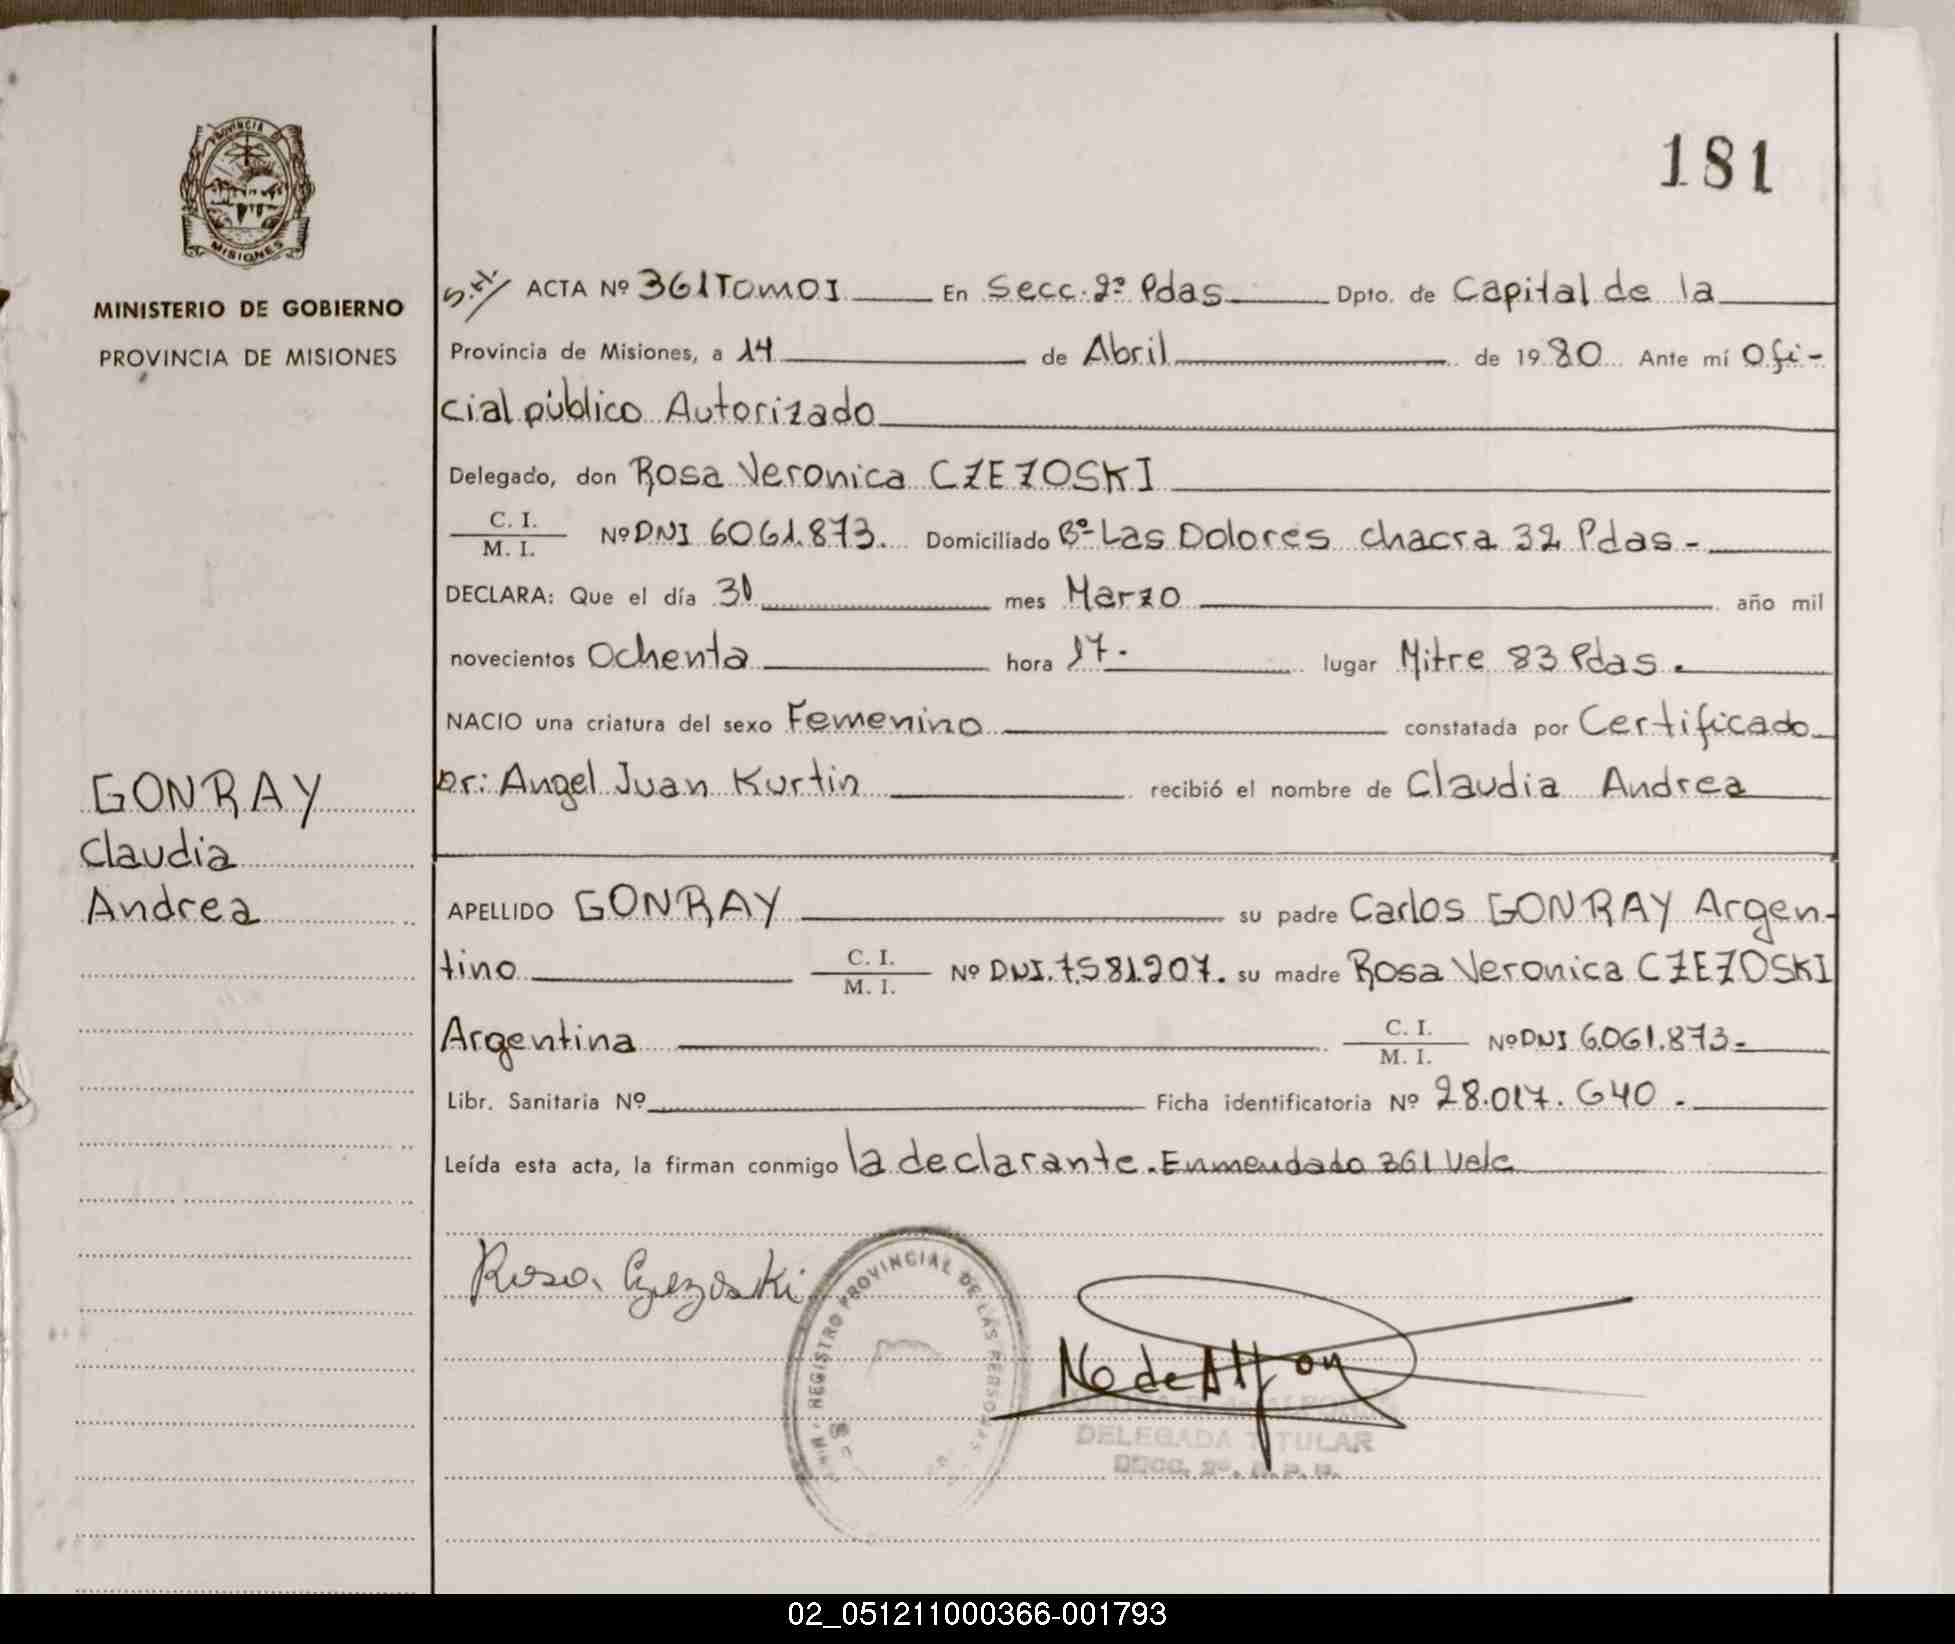 PROVINCIA DE
MISIONES
MINISTERIO DE GOBIERNO
PROVINCIA DE MISIONES
181
ACTA Nº 361 Tomo I En Secc. 2º Pdas Dpto. de Capital de la
Provincia de Misiones, a 14 de Abril de 1980 Ante mí Ofi-
cial público Autorizado
Delegado, don Rosa Veronica CZEZOSKI
C. I.
M. I. Nº DNI 6061.873. Domiciliado Bº Las Dolores chacra 32 Pdas -
DECLARA: Que el día 30 mes Marzo año mil
novecientos Ochenta hora 17. lugar Mitre 83 Pdas.
NACIO una criatura del sexo Femenino constatada por Certificado
Dr: Angel Juan Kurtin recibió el nombre de Claudia Andrea
GONRAY
Claudia
Andrea
APELLIDO GONRAY su padre Carlos GONRAY Argen-
tino C. I.
M. I. Nº DNI. 7.581.207. su madre Rosa Veronica CZEZOSKI
Argentina C. I.
M. I. Nº DNI 6.061.873-
Libr. Sanitaria Nº Ficha identificatoria Nº 28.017.640.-
Leída esta acta, la firman conmigo la declarante. Enmendado 361 Vale
Rosa Czezoski
REGISTRO PROVINCIAL DE LAS PERSONAS
DELEGADA TITULAR
02_051211000366-001793